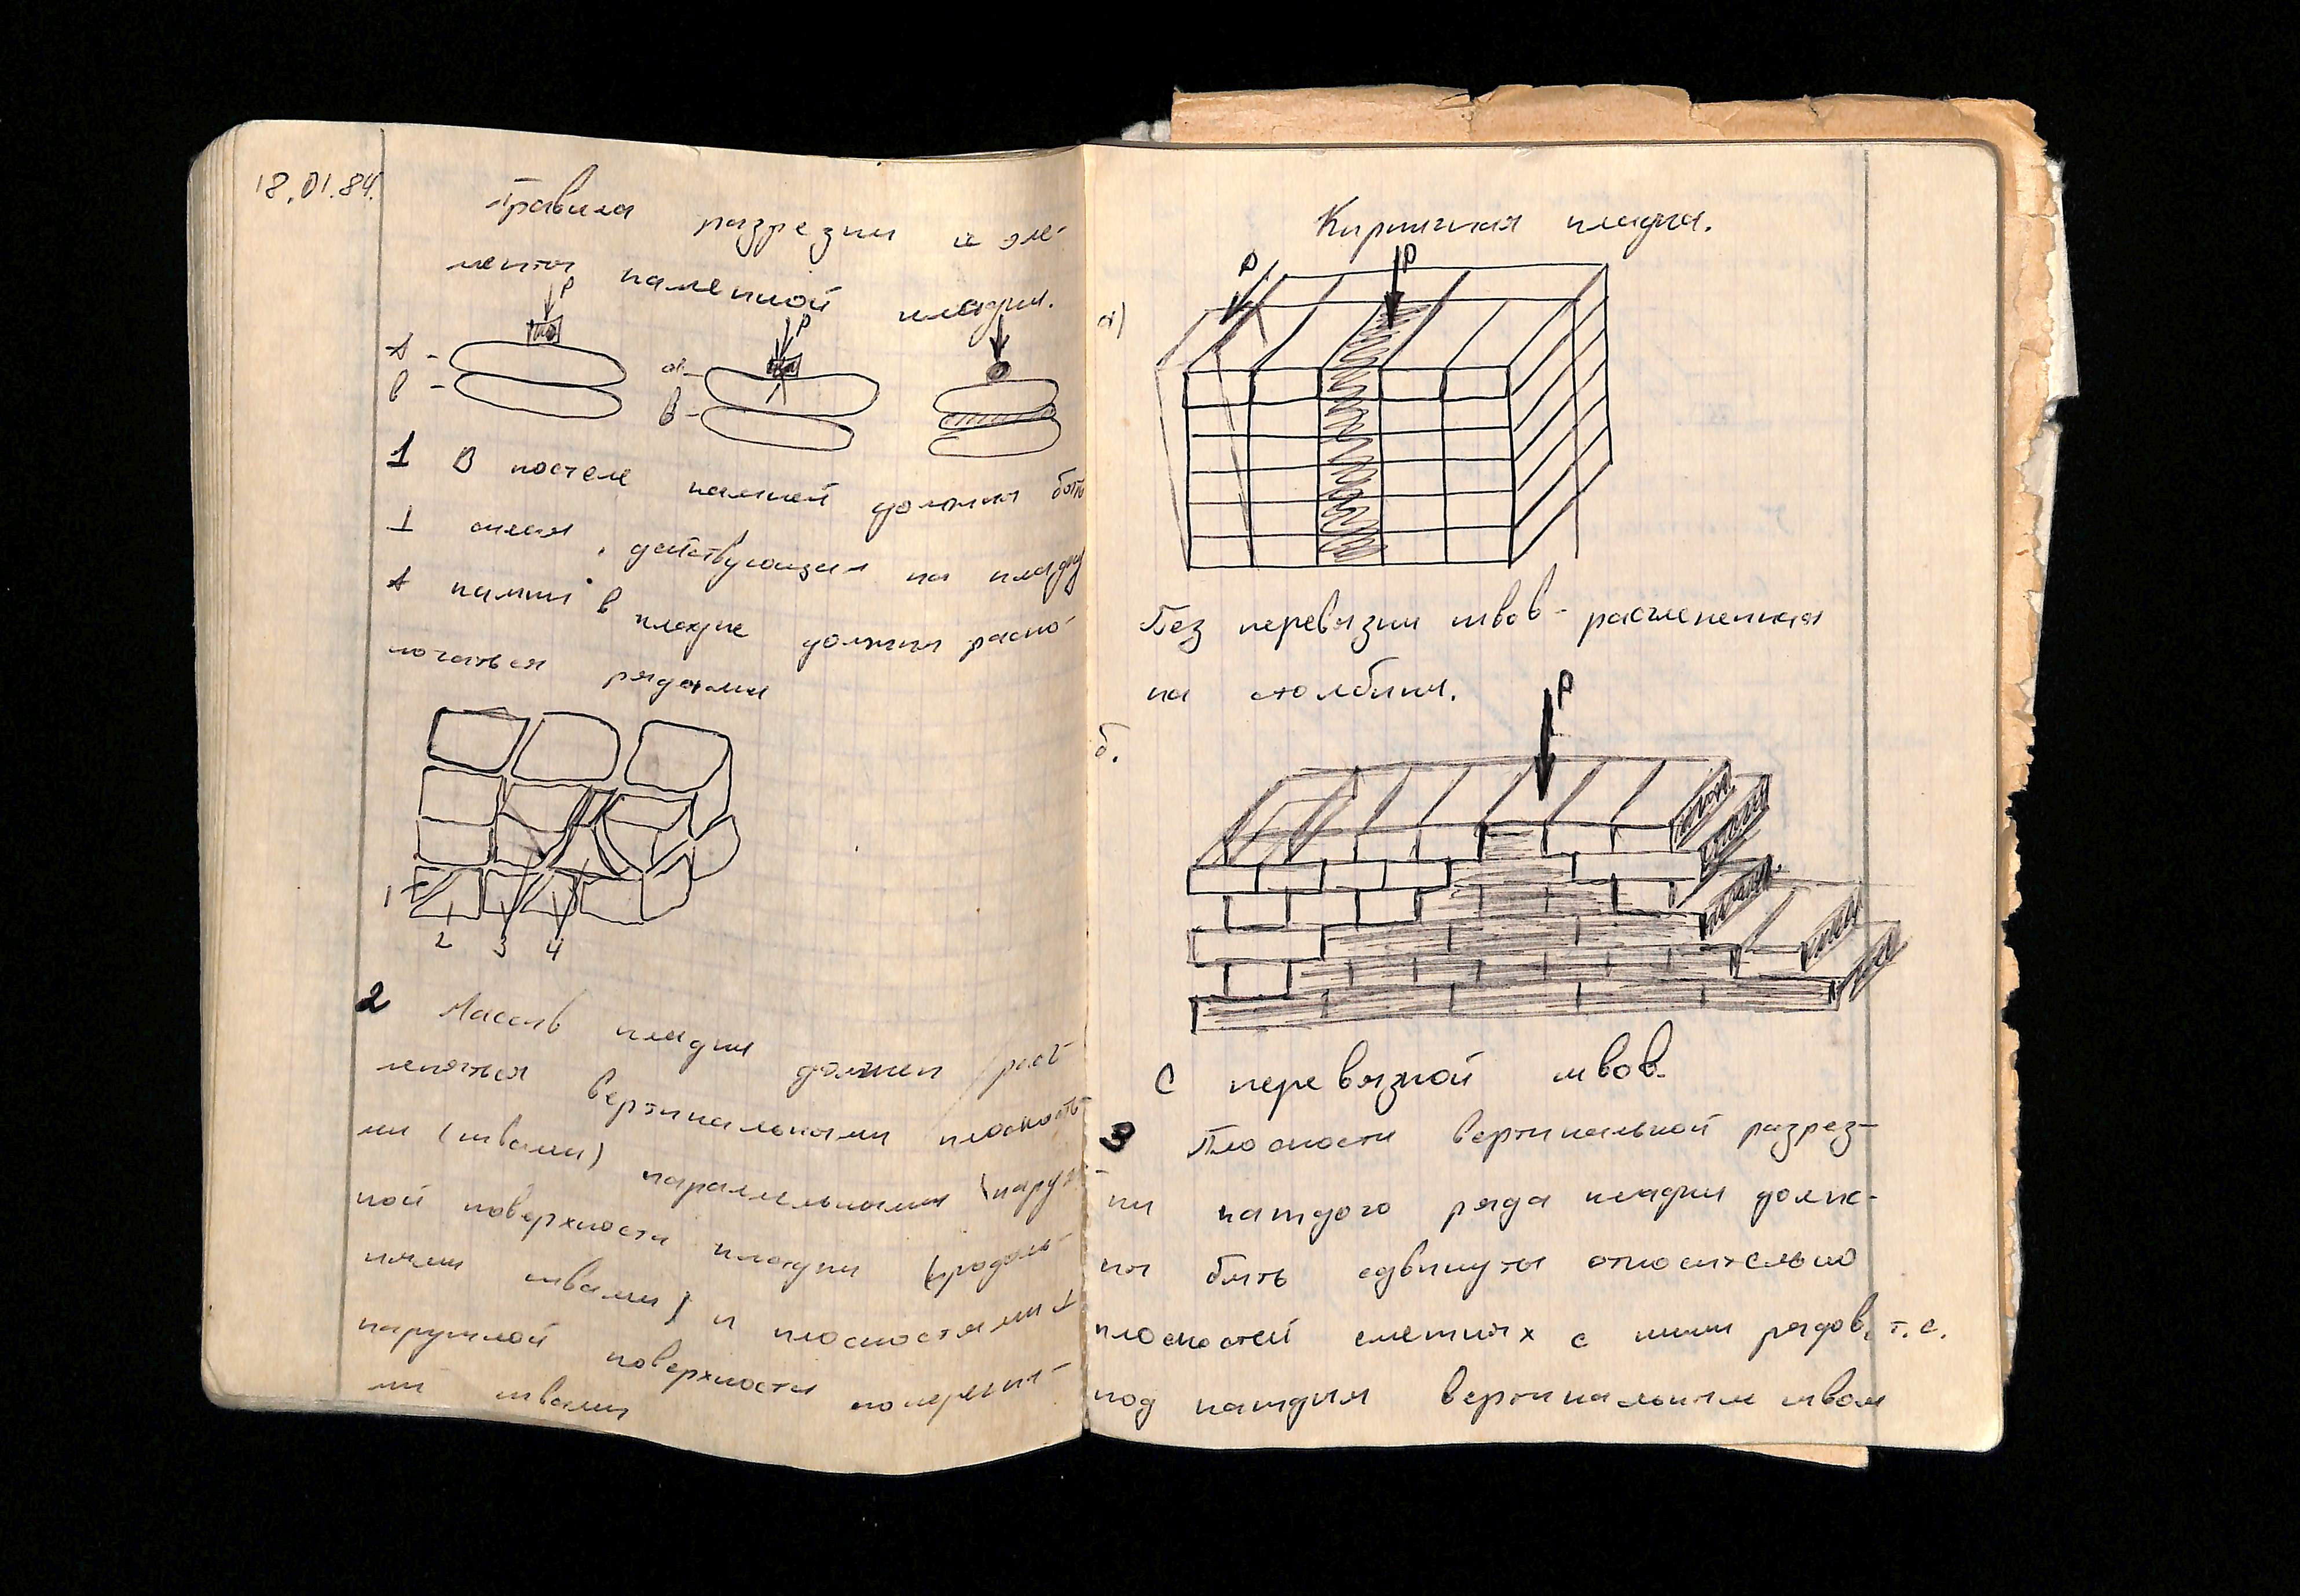 18.01.84.
Правила разрезки и эле-
менты каменной кладки.
P P
А - а -
В - В -
1 В постеле камней должны быть
⊥ силам, действующая на кладку
А камни в кладке должны распо-
логаться рядами
1
2 3 4
2 Массив кладки должен
леняться вертикальными плоскостя
ми (швами) параллельными наруж-
ной поверхности кладки (продоль-
ными швами) и плоскостями ⊥
наружной поверхности поперечны-
ми швами
Кирпичная кладка.
P P
а)
Без перевязки швов - расчлененная
на столбики.
P
б.
С перевязкой швов.
3 Плоскости вертикальной разрез-
ки каждого ряда кладки долж-
ны быть сдвинуты относительно
плоскостей смежных с ними рядов, т.е.
под каждым вертикальным швом